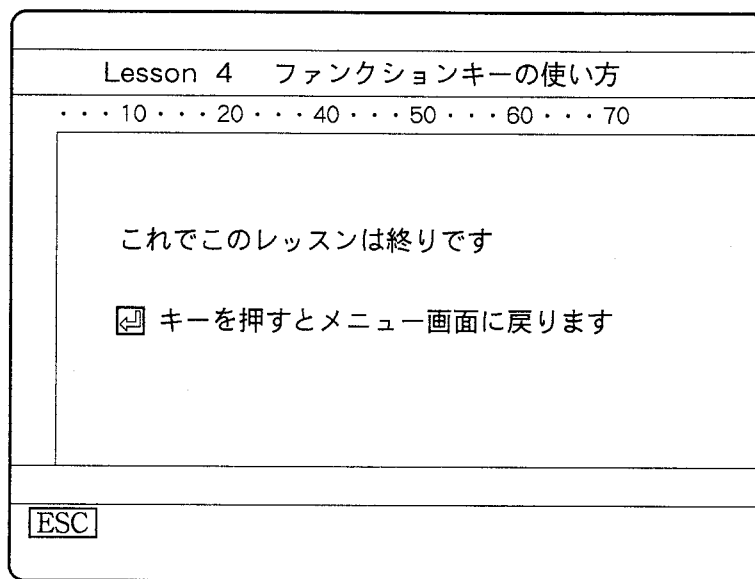 Lesson 4　ファンクションキーの使い方
・・・10・・・20・・・40・・・50・・・60・・・70
これでこのレッスンは終りです
⏎ キーを押すとメニュー画面に戻ります
ESC